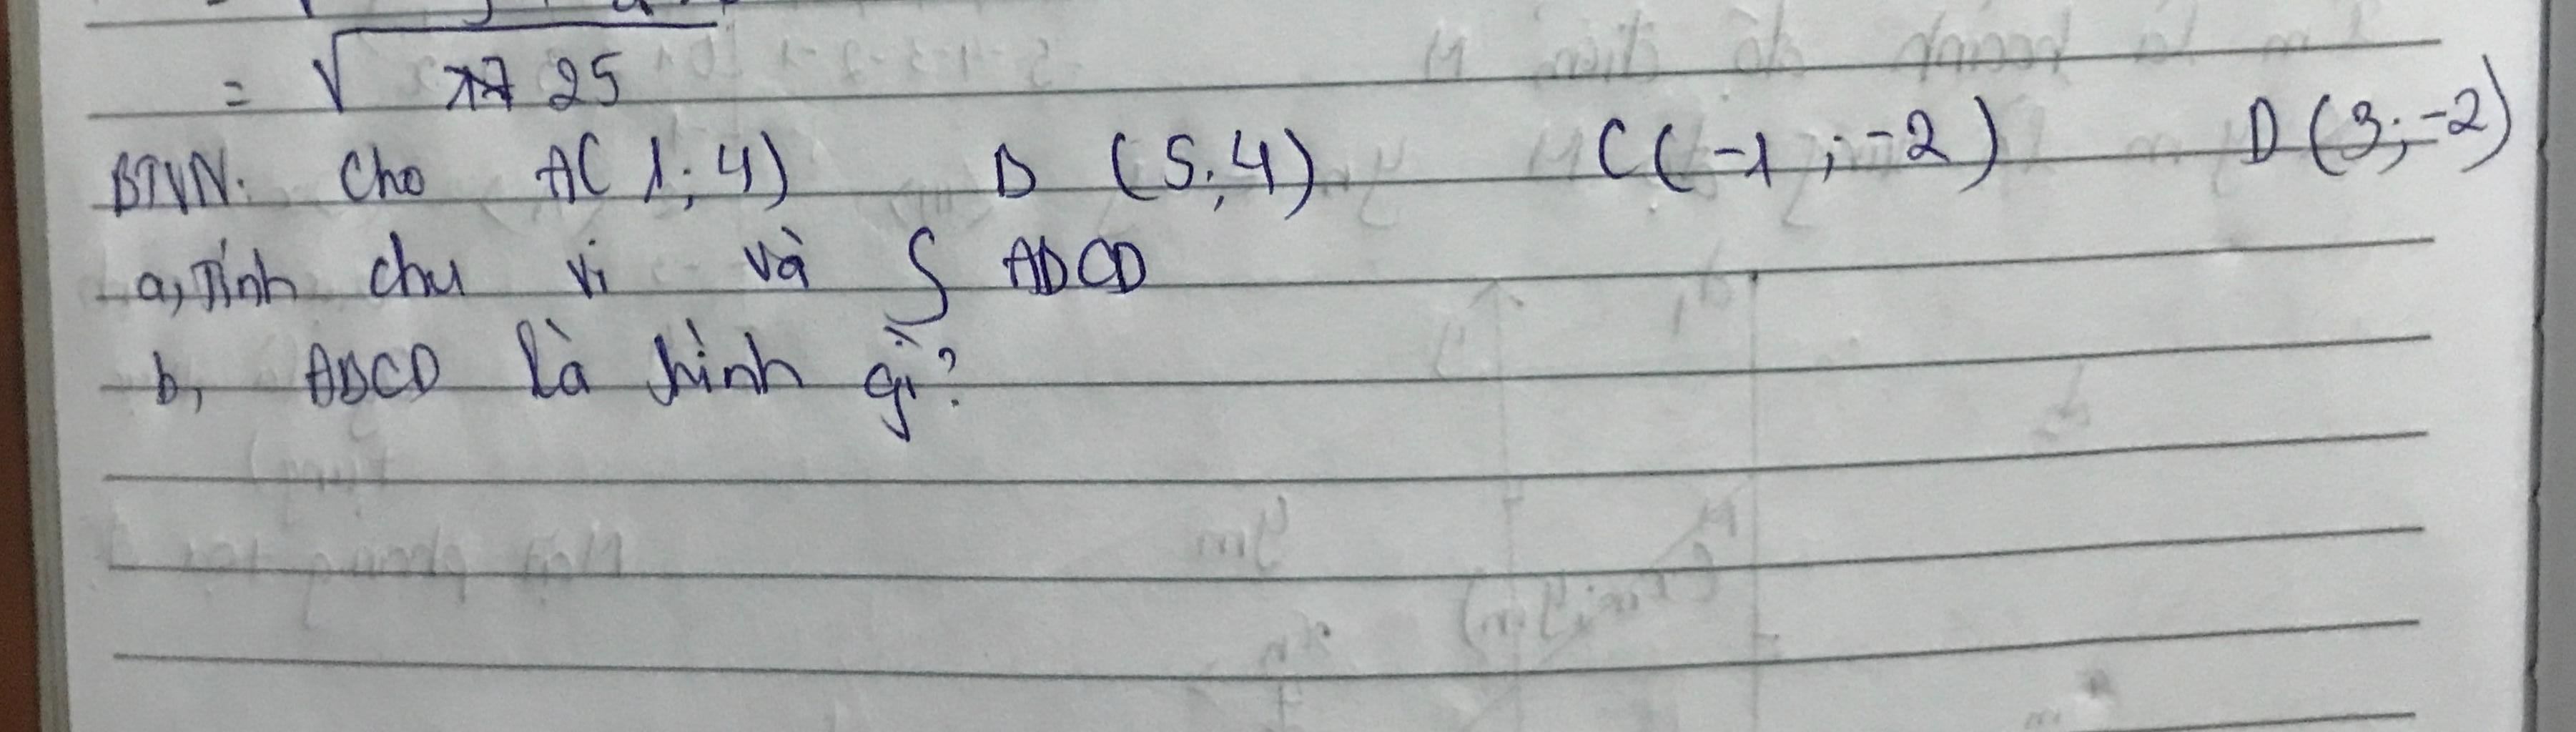 = √25
BTVN: Cho A(1;4) B(5;4) C(-1;-2) D(3;-2)
a, Tính chu vi và S ABCD
b, ABCD là hình gì?